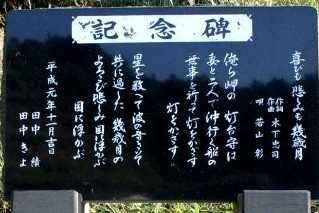 碑念記
喜びも悲しみも幾歳月
作詞 作曲 木下忠司
唄 若山 彰
俺ら岬の 灯台守は
妻と二人で 沖行く船の
無事を祈って 灯をかざす
灯をかざす
星を数えて 波の音きいて
共に過した 幾歳月の
よろこび悲しみ 目に浮かぶ
目に浮かぶ
平成元年十一月吉日
田中 績
田中 きよ